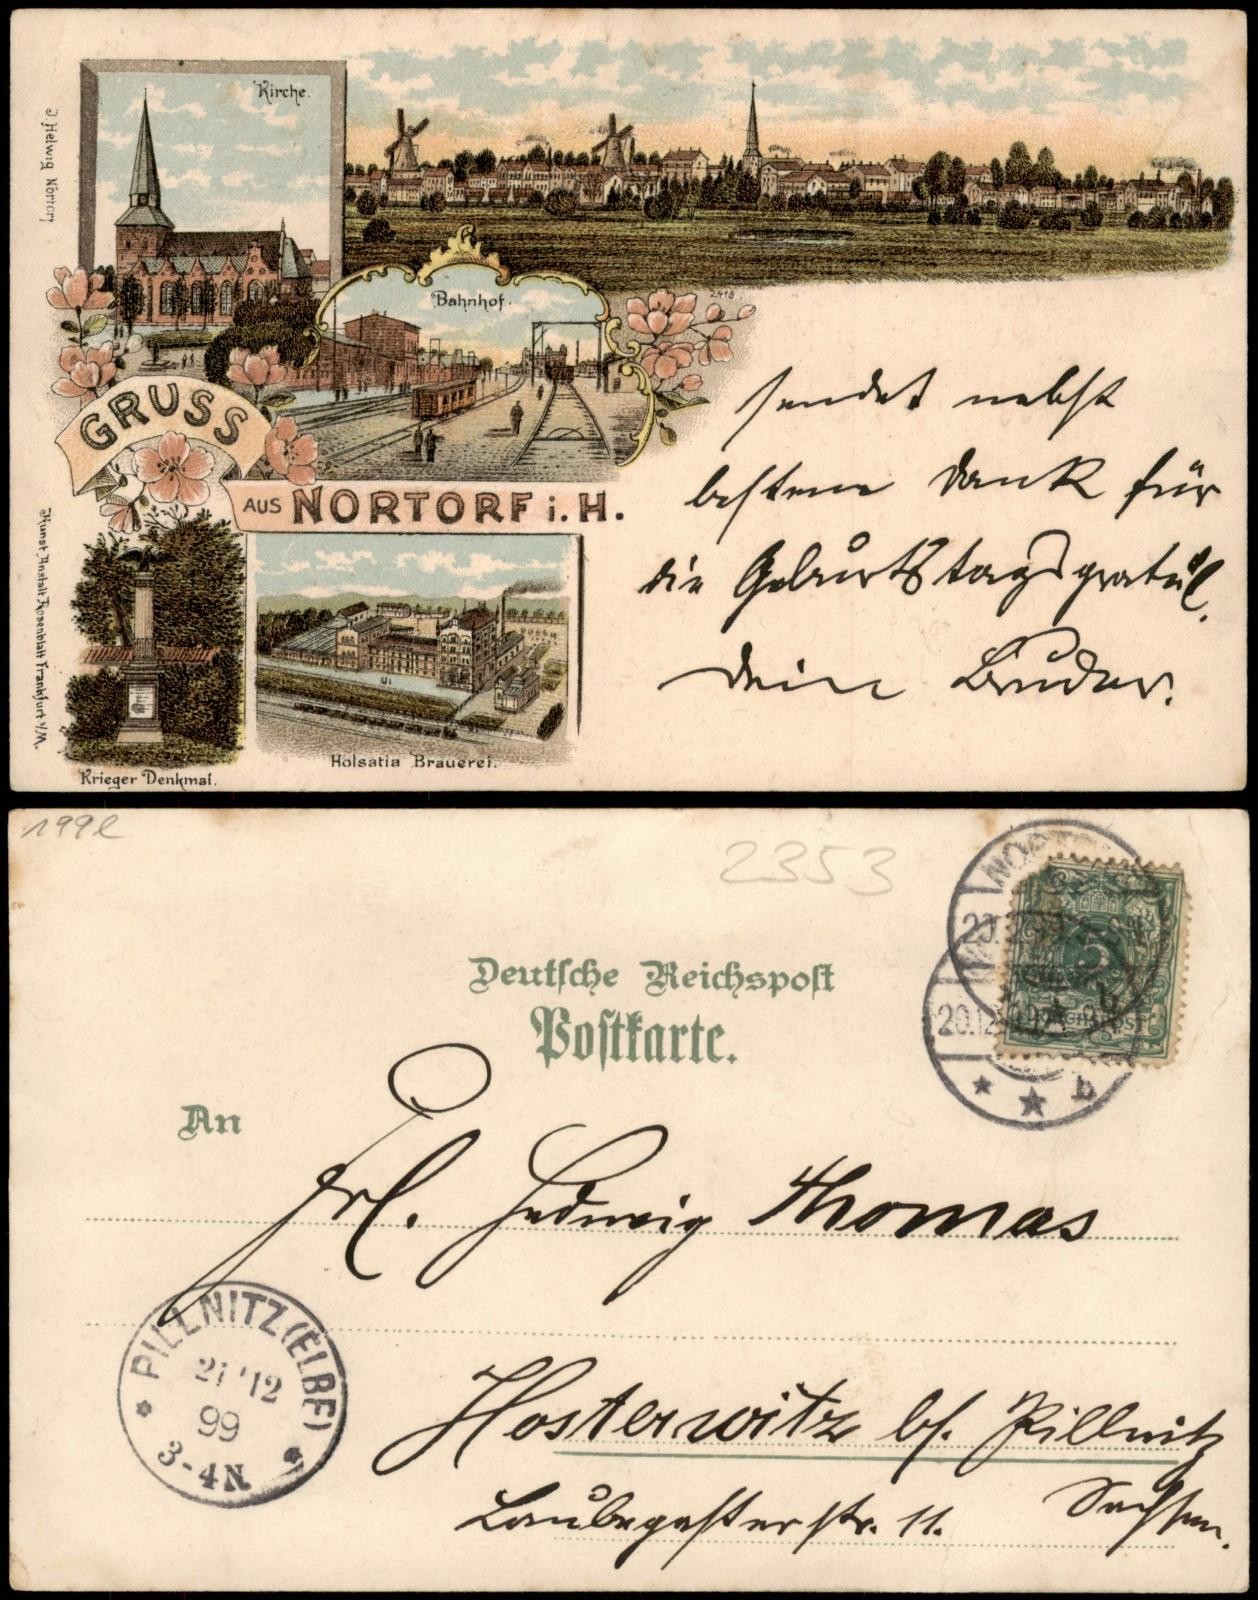 Kirche.
J. Helwig Nortorf
Bahnhof.
2418.
GRUSS
AUS NORTORF i. H.
sendet nebst
bestem Dank für
die Geburtstagsgratul.
Dein Bruder.
Kunst Anstalt Rosenblatt Frankfurt a/M.
Krieger Denkmal.
Holsatia Brauerei.
2353
Deutsche Reichspost
Postkarte.
5
REICHSPOST
20.12.99
b
An
Frl. Hedwig Thomas
PILLNITZ (ELBE)
21 12
99
3-4N
Hosterwitz b/. Pillnitz
Laubegasterstr. 11. Sachsen.